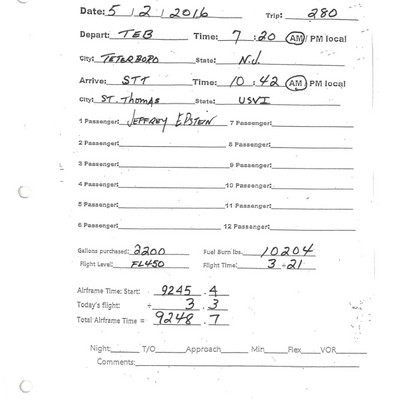 Date: 5 / 2 / 2016 Trip: 280
Depart: TEB Time: 7 : 20 AM / PM local
City: TETERBORO State: N.J.
Arrive: STT Time: 10 : 42 AM / PM local
City: ST. Thomas State: USVI
1 Passenger: JEFFREY EPSTEIN 7 Passenger:
2 Passenger: 8 Passenger:
3 Passenger: 9 Passenger:
4 Passenger: 10 Passenger:
5 Passenger: 11 Passenger:
6 Passenger: 12 Passenger:
Gallons purchased: 2200 Fuel Burn lbs. 10204
Flight Level: FL450 Flight Time: 3 + 21
Airframe Time: Start: 9245 . 4
Today's flight: + 3 . 3
Total Airframe Time = 9248 . 7
Night: T/O Approach Min Flex VOR
Comments: